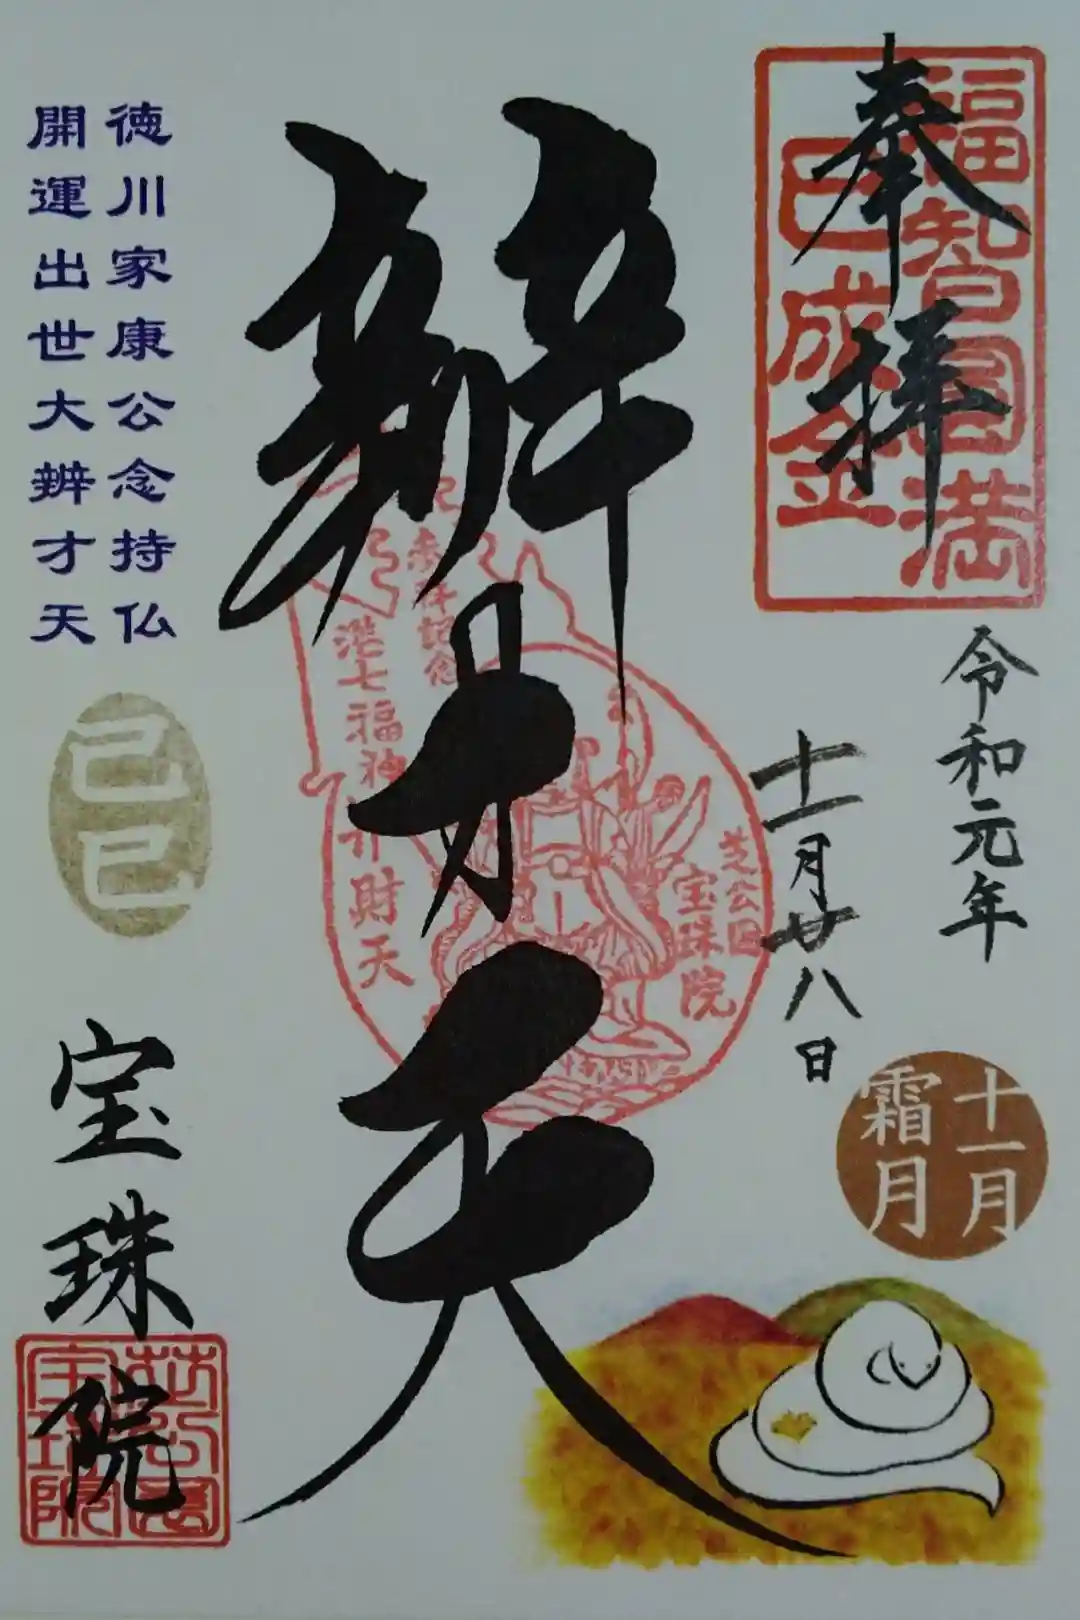 奉拝
福智円満
巳成金
令和元年
十一月廿八日
十一月
霜月
辨才天
参拝記念
港七福神
弁財天
芝公園
宝珠院
徳川家康公念持仏
開運出世大辨才天
己巳
宝珠院
芝公園
宝珠院